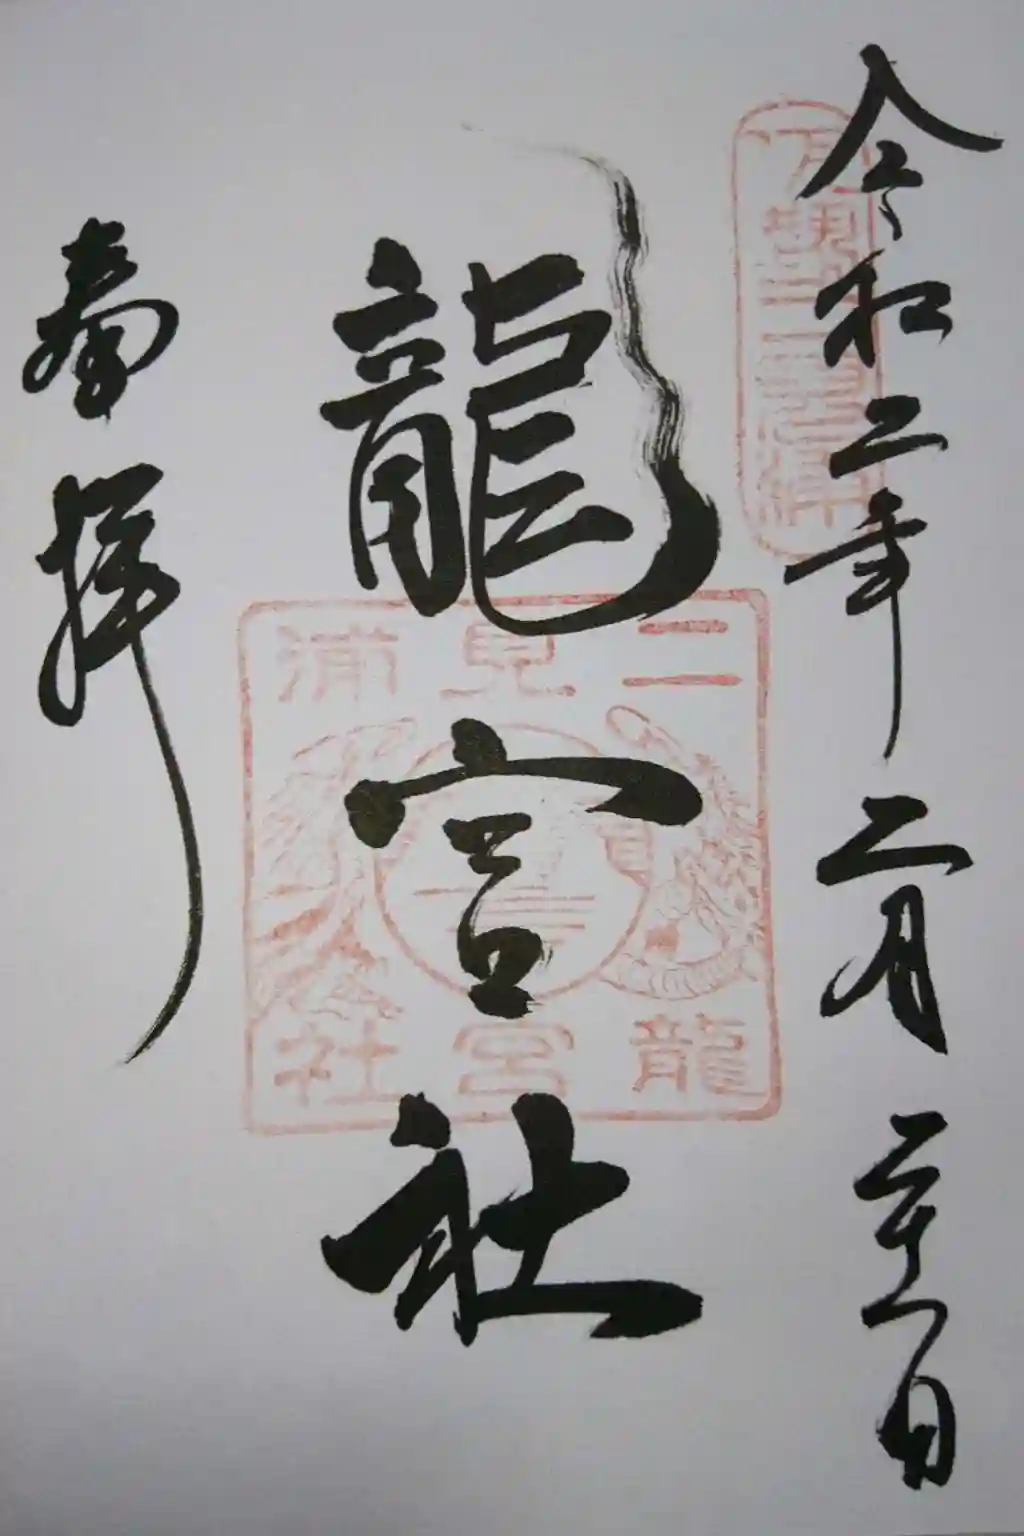 令和二年二月二十一日
龍宮社
二見浦
龍宮社
奉拝